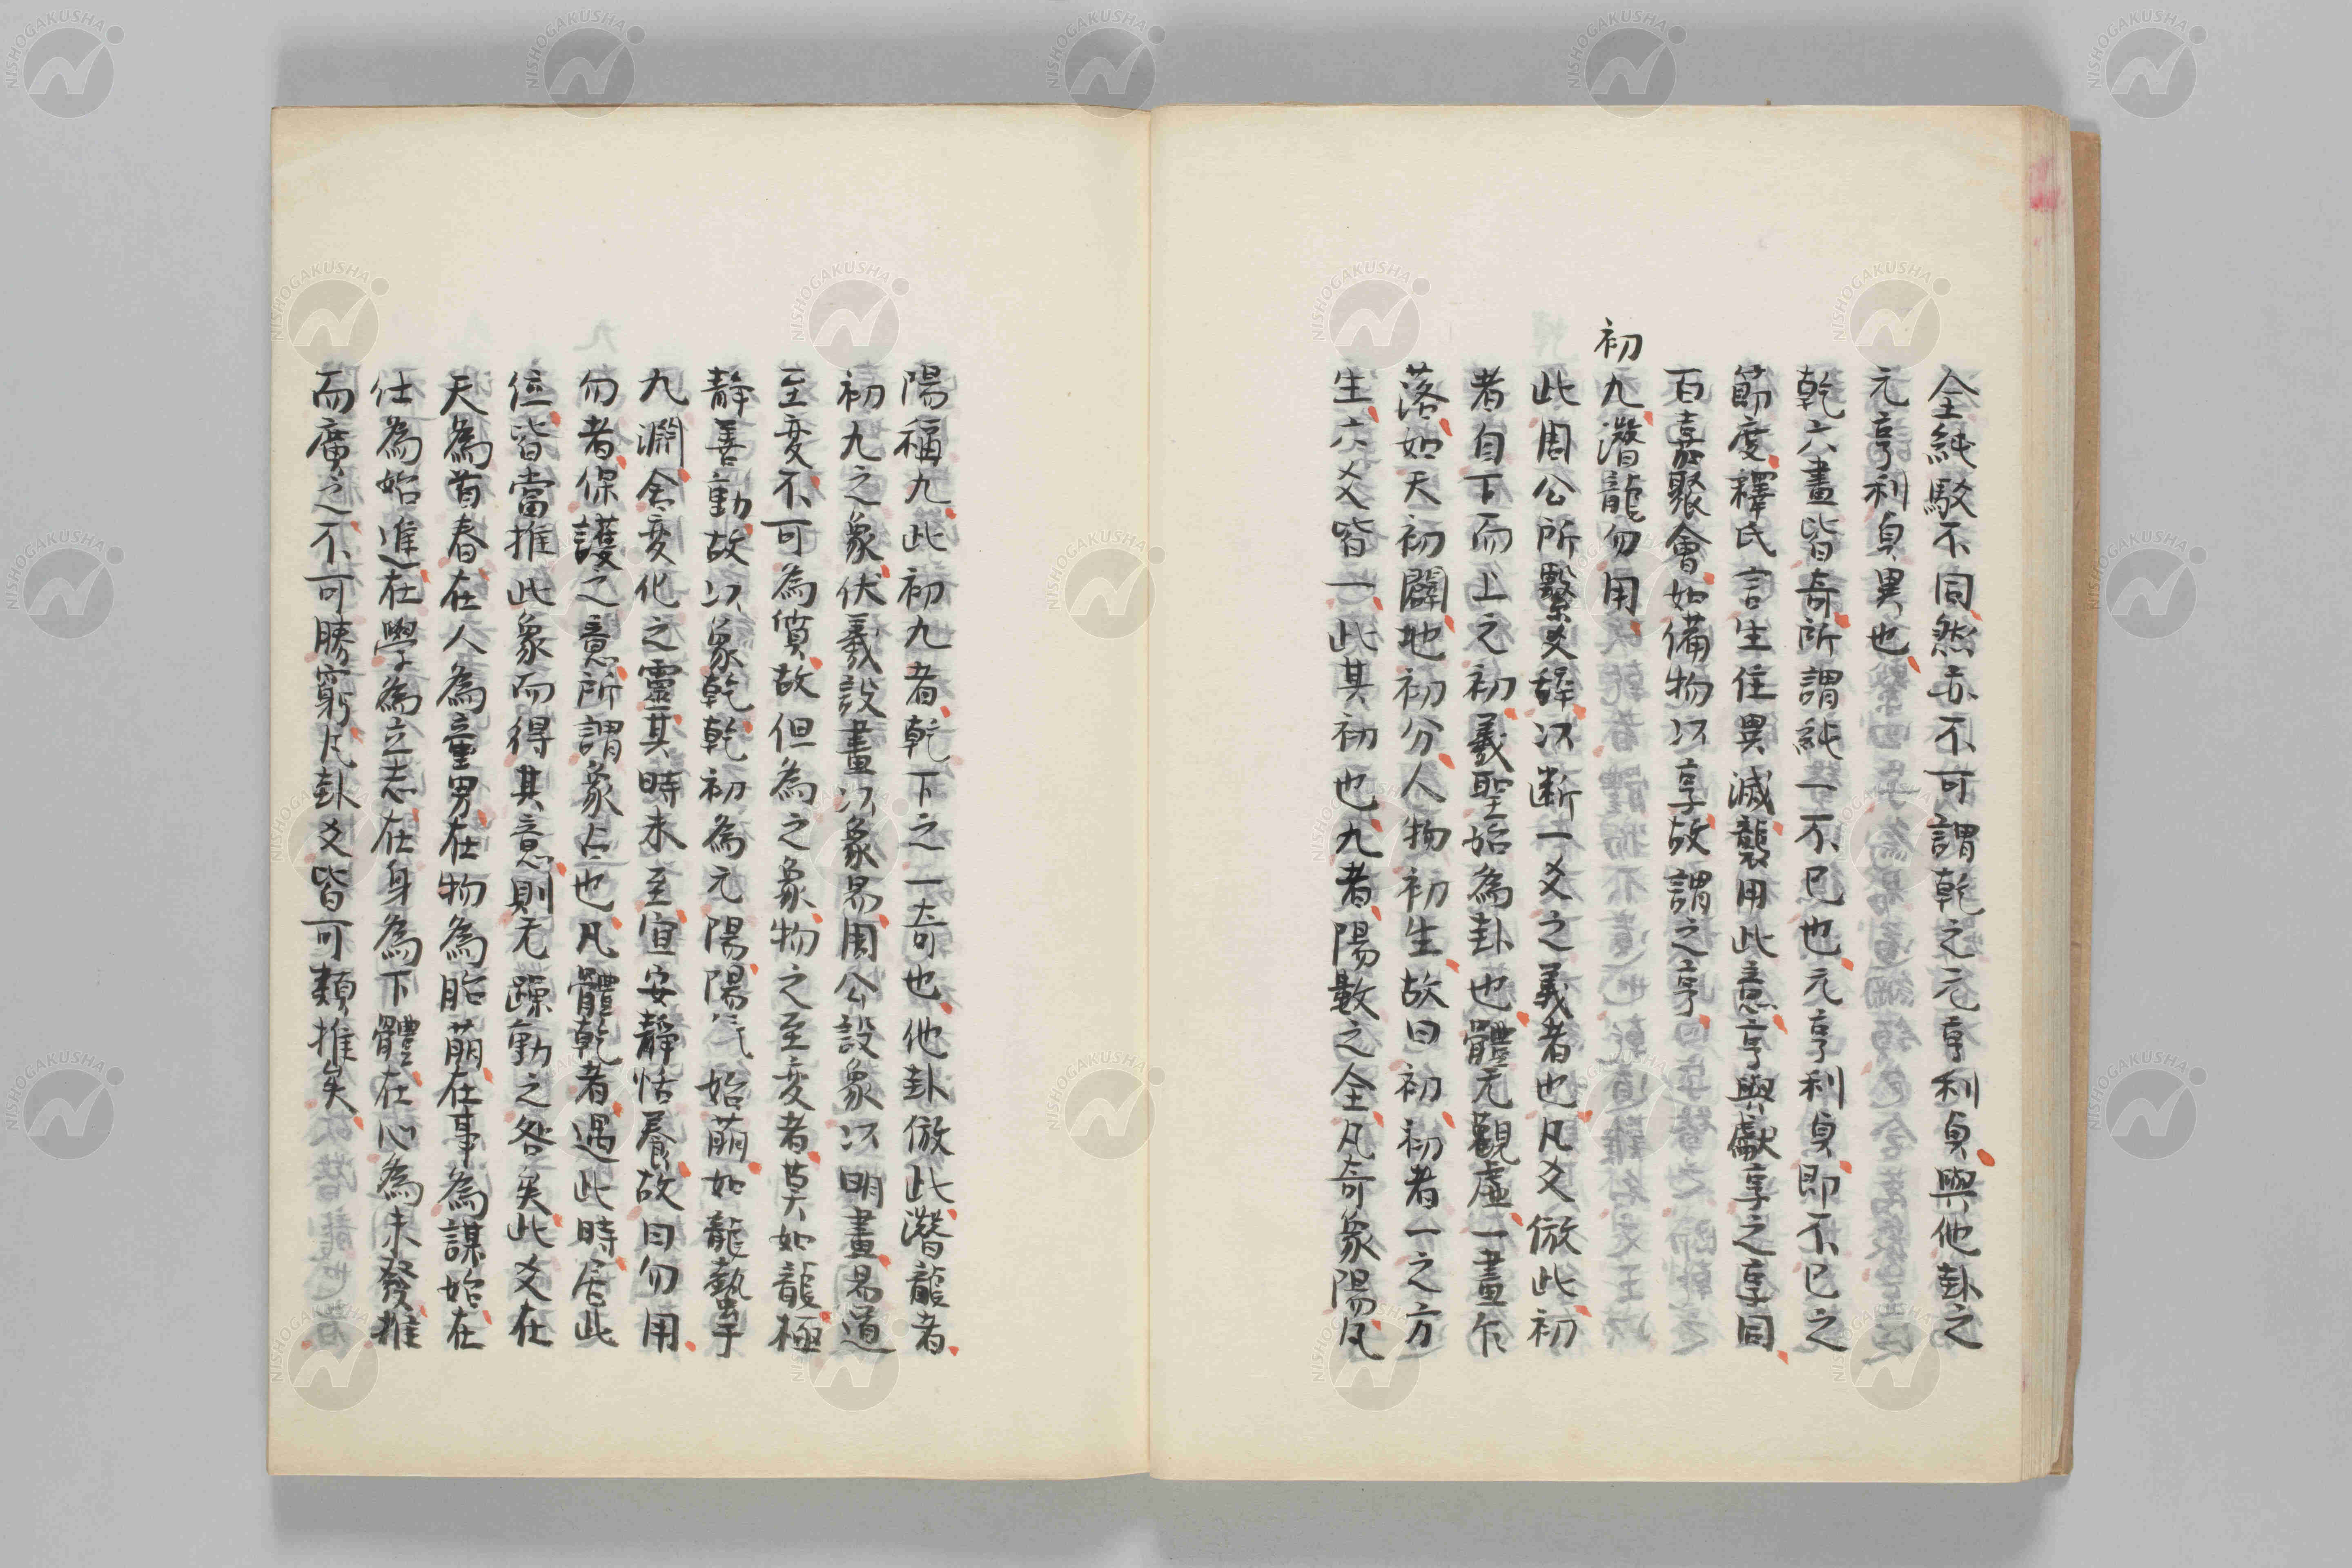 全純駁不同然亦不可謂乾之元亨利貞與他卦之
元亨利貞異也
乾六畫皆奇所謂純一不已也元亨利貞即不已之
節度釋氏言生住異滅襲用此意亨與獻享之享同
百嘉聚會如備物以享故謂之亨
初九潛龍勿用
此周公所繫爻辭以斷一爻之義者也凡爻倣此初
者自下而上之初羲聖始為卦也體无觀虛一畫乍
落如天初闢地初分人物初生故曰初初者一之方
生六爻皆一此其初也九者陽數之全凡奇象陽凡
陽稱九此初九者乾下之一奇也他卦倣此潛龍者
初九之象伏羲設畫以象易周公設象以明畫易道
至変不可為質故但為之象物之至変者莫如龍極
靜善動故以象乾乾初為元陽陽气始萌如龍蟄于
九淵含変化之靈其時未至宜安靜恬養故曰勿用
勿者保護之意所謂象占也凡體乾者遇此時居此
位皆當推此象而得其意則无躁動之咎矣此爻在
天為首春在人為童男在物為胎萌在事為謀始在
仕為始進在學為立志在身為下體在心為未發推
而廣之不可勝窮凡卦爻皆可類推矣
NISHOGAKUSHA